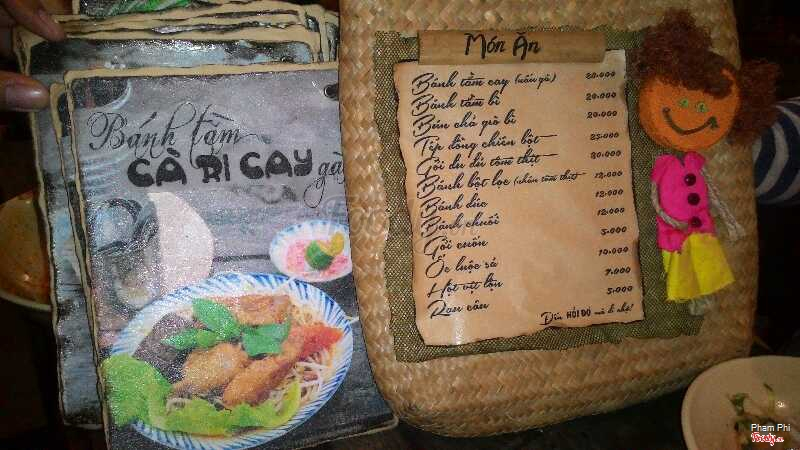 Bánh tằm
CÀ RI CAY gà
Món Ăn
Bánh tằm cay (nấu gà) 20.000
Bánh tằm bì 20.000
Bún chả giò bì 20.000
Tép đồng chiên bột 25.000
Gỏi đu đủ tôm thịt 20.000
Bánh bột lọc (nhân tôm thịt) 12.000
Bánh đúc 12.000
Bánh chuối 12.000
Gỏi cuốn 5.000
Ốc luộc sả 10.000
Hột vịt lộn 7.000
Rau câu 5.000
HỎI ĐÓ
Pham Phi